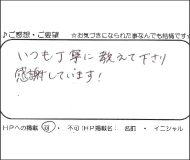 ♪ご感想・ご要望 ☆お気づきになられた事なんでも結構です☆
いつも丁寧に教えて下さり
感謝しています!
HPへの掲載 可 ・ 不可(HP掲載名: 名前 ・ イニシャル